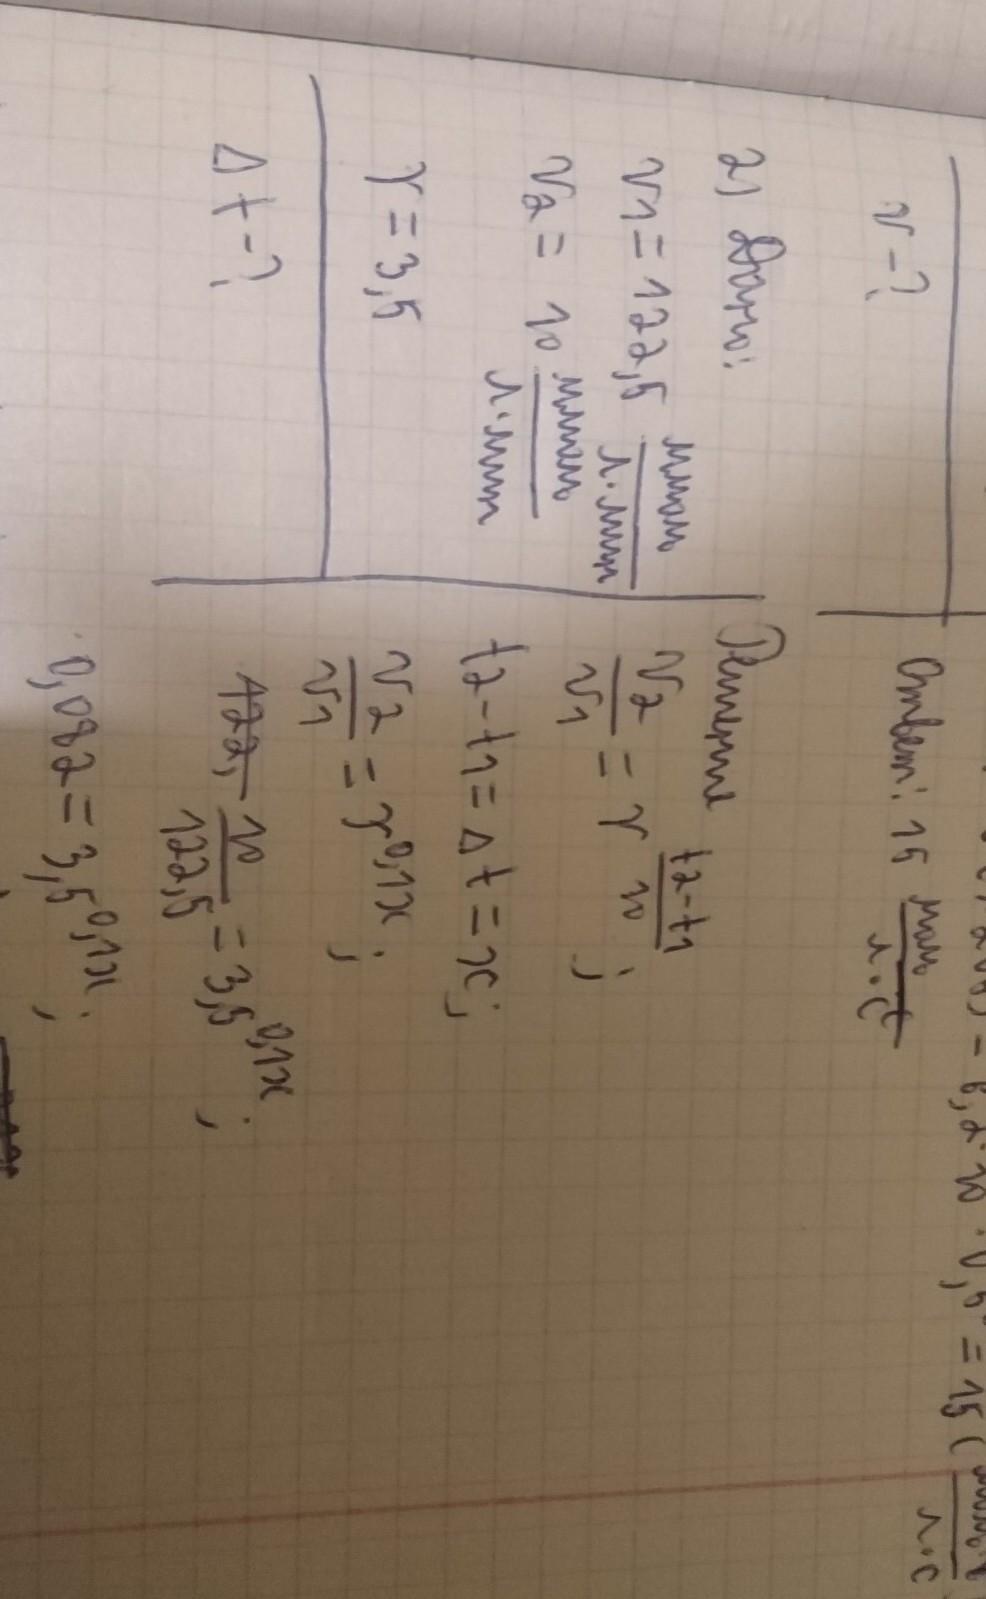 = 15 (
л·с
v - ?
Ответ: 15 моль/л·с
2) Дано:
v1 = 122,5 ммоль/л·мин
v2 = 10 ммоль/л·мин
γ = 3,5
Δt - ?
Решение
v2/v1 = γ^(t2-t1)/10 ;
t2 - t1 = Δt = x ;
v2/v1 = γ^0,1x ;
10/122,5 = 3,5^0,1x ;
0,082 = 3,5^0,1x ;